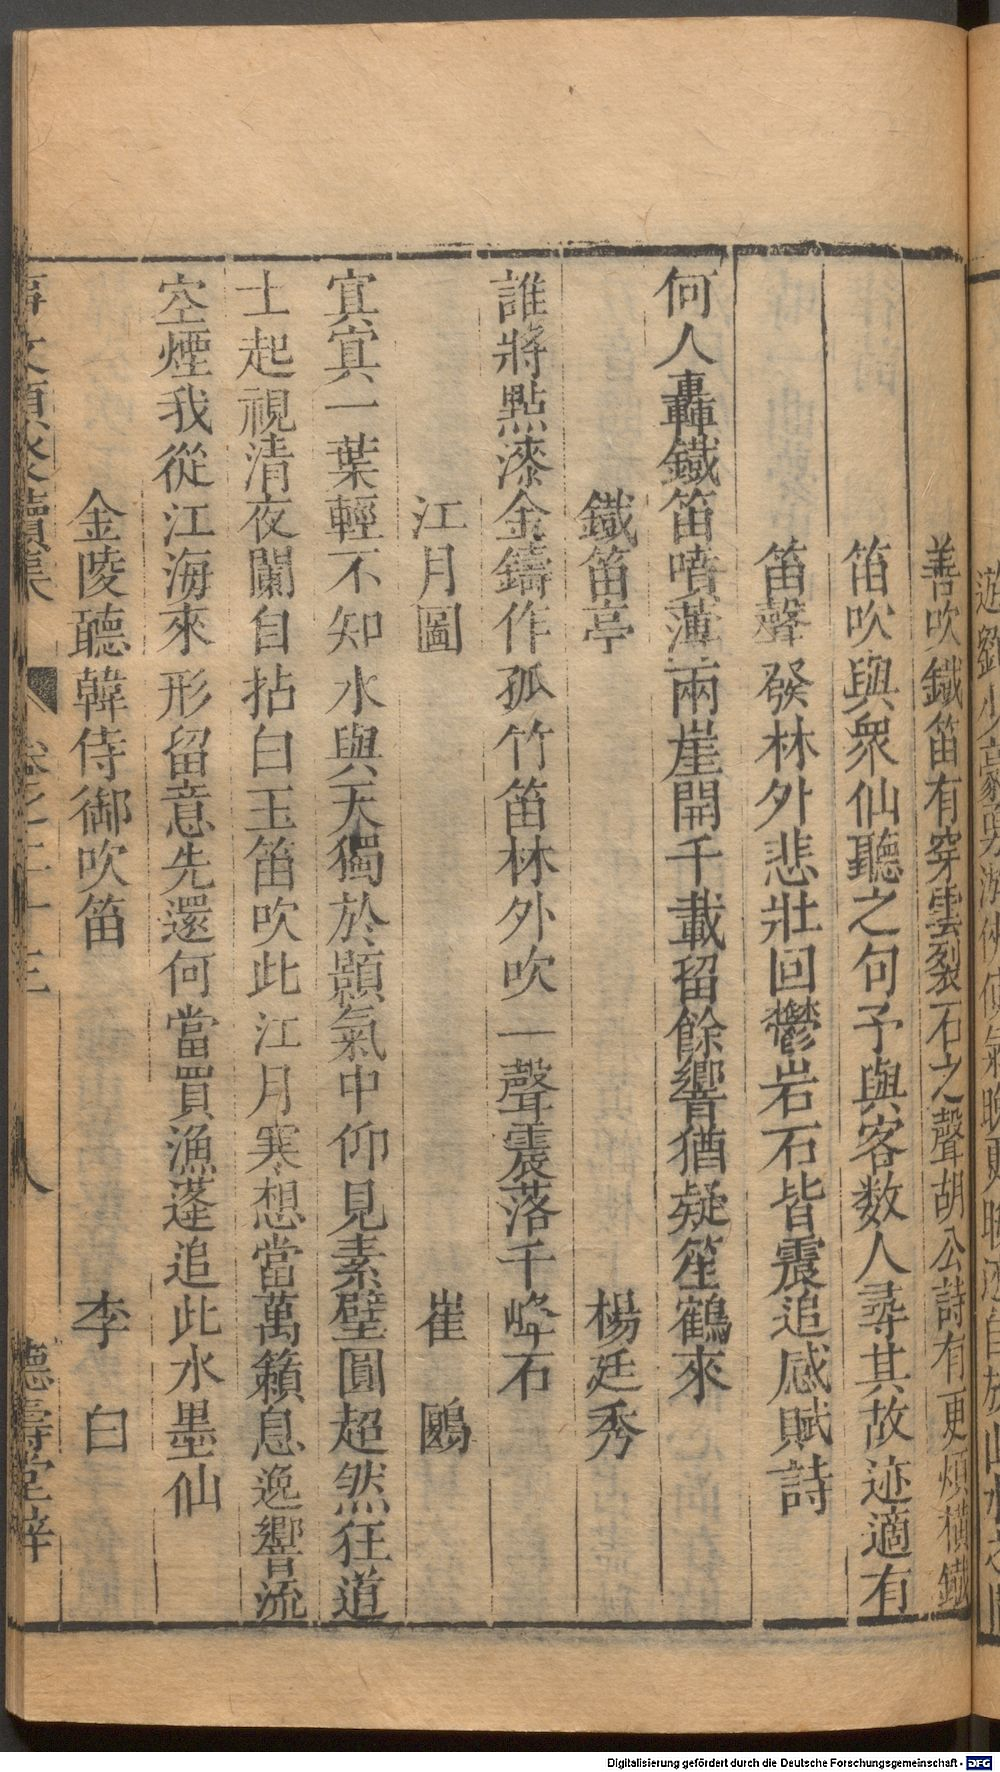 善吹鐵笛有穿雲裂石之聲胡公詩有更煩橫鐵
笛吹與衆仙聽之句予與客数人尋其故迹適有
笛聲發林外悲壯回鬱岩石皆震追感賦詩
何人轟鐵笛噴薄兩崖開千載留餘響猶疑笙鶴來
鐵笛亭 楊廷秀
誰將點漆金鑄作孤竹笛林外吹一聲震落千峰石
江月圖 崔鷗
冥冥一葉輕不知水與天獨於顥氣中仰見素壁圓超然狂道
士起視清夜闌自拈白玉笛吹此江月寒想當萬籟息逸響流
空煙我從江海來形留意先還何當買漁蓬追此水墨仙
金陵聽韓侍御吹笛 李白
事文類聚續集 卷之二十三 八 德壽堂梓
Digitalisierung gefördert durch die Deutsche Forschungsgemeinschaft - DFG